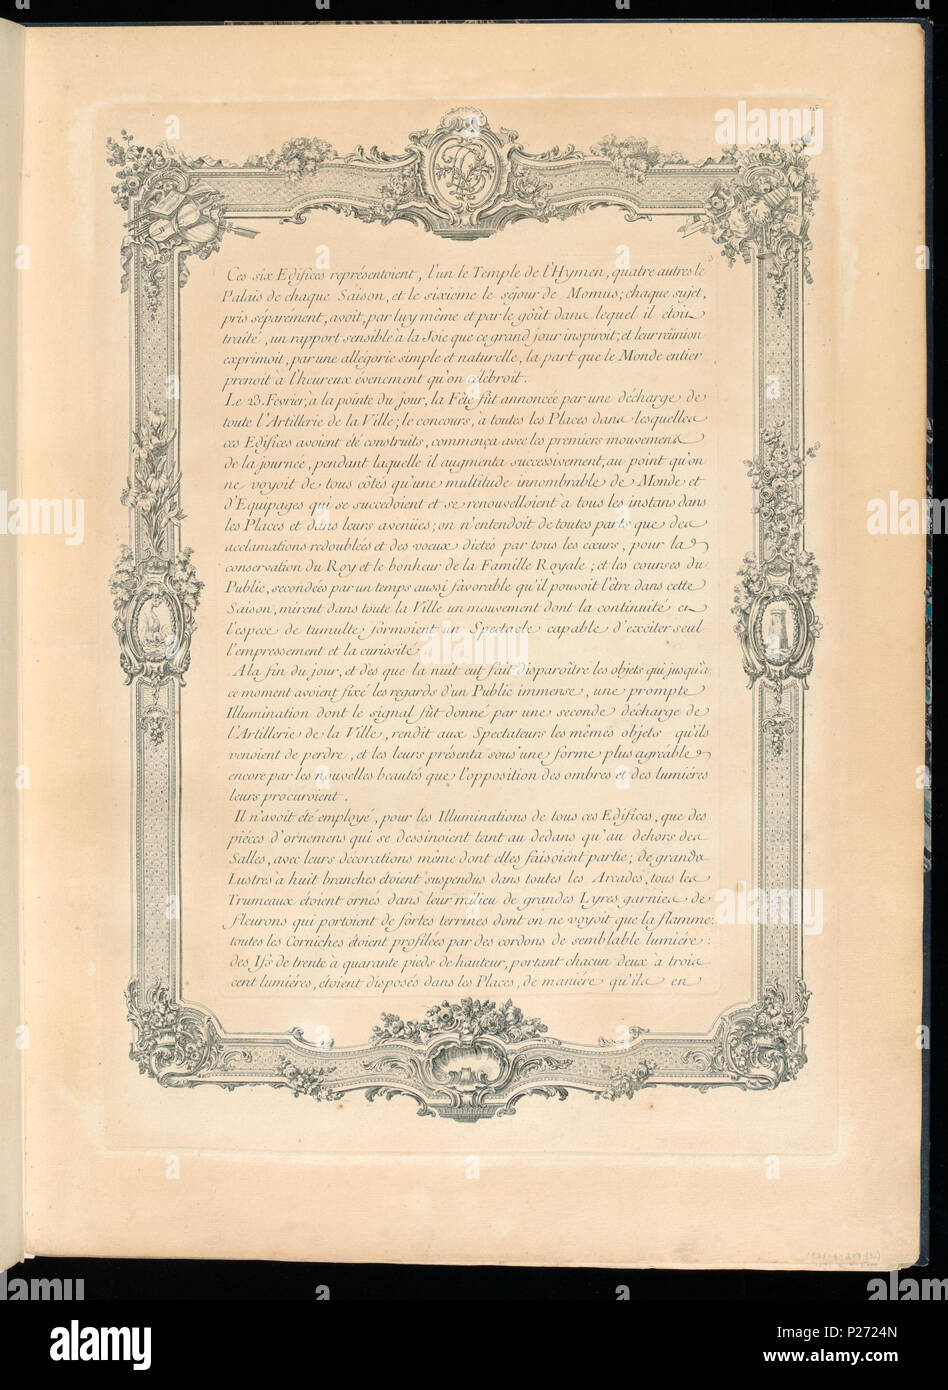 Ces six Edifices représentoient, l'un le Temple de l'Hymen, quatre autres le
Palais de chaque Saison, et le sixieme le séjour de Momus; chaque sujet,
pris séparément, avoit, par luy même et par le goût dans lequel il étoit
traité, un rapport sensible à la Joie que ce grand jour inspiroit; et leur réünion
exprimoit, par une allégorie simple et naturelle, la part que le Monde entier
prenoit à l'heureux évenement qu'on célébroit.
Le 23. Fevrier, à la pointe du jour, la Fête fut annoncée par une décharge de
toute l'Artillerie de la Ville; le concours, à toutes les Places dans lesquelles
ces Edifices avoient été construits, commença avec les premiers mouvemens
de la journée, pendant laquelle il augmenta successivement, au point qu'on
ne voyoit de tous côtés qu'une multitude innombrable de Monde et
d'Equipages qui se succedoient et se renouvelloient à tous les instans dans
les Places et dans leurs avenües; on n'entendoit de toutes parts que des
acclamations redoublées et des voeux dictés par tous les cœurs, pour la
conservation du Roy et le bonheur de la Famille Royale; et les courses du
Public, secondées par un temps aussi favorable qu'il pouvoit l'être dans cette
Saison, mirent dans toute la Ville un mouvement dont la continuité et
l'espece de tumulte formoient un Spectacle capable d'exciter seul
l'empressement et la curiosité.
A la fin du jour, et dès que la nuit eut fait disparoître les objets qui jusqu'à
ce moment avoient fixé les regards d'un Public immense, une prompte
Illumination dont le signal fût donné par une seconde décharge de
l'Artillerie de la Ville, rendit aux Spectateurs les mêmes objets qu'ils
venoient de perdre, et les leurs présenta sous une forme plus agréable
encore par les nouvelles beautés que l'opposition des ombres et des lumiéres
leurs procuroient.
Il n'avoit été employé, pour les Illuminations de tous ces Edifices, que des
piéces d'ornemens qui se dessinoient tant au dedans qu'au dehors des
Salles, avec leurs décorations même dont elles faisoient partie; de grands
Lustres à huit branches étoient suspendus dans toutes les Arcades, tous les
Trumeaux étoient ornés dans leur milieu de grandes Lyres garnies de
fleurons qui portoient de fortes terrines dont on ne voyoit que la flamme:
toutes les Corniches étoient profilées par des cordons de semblable lumiére:
des Ifs de trente à quarante pieds de hauteur, portant chacun deux à trois
cent lumiéres, étoient disposés dans les Places, de maniére qu'ils en
a
alamy
alamy stock photo
Image ID: P2724N
www.alamy.com